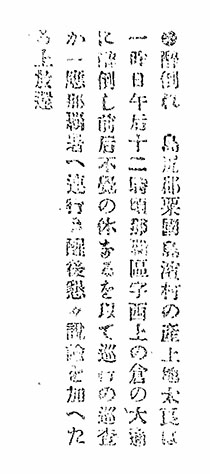 ◉醉倒れ　島尻郡粟國島濱村の産上地太良は
一昨日午后十二時頃那覇區字西上の倉の大通
に醉倒し前后不覺の休なるを以て巡行の巡査
か一應那覇署へ連行き醒後懇々說諭を加へた
る上放還